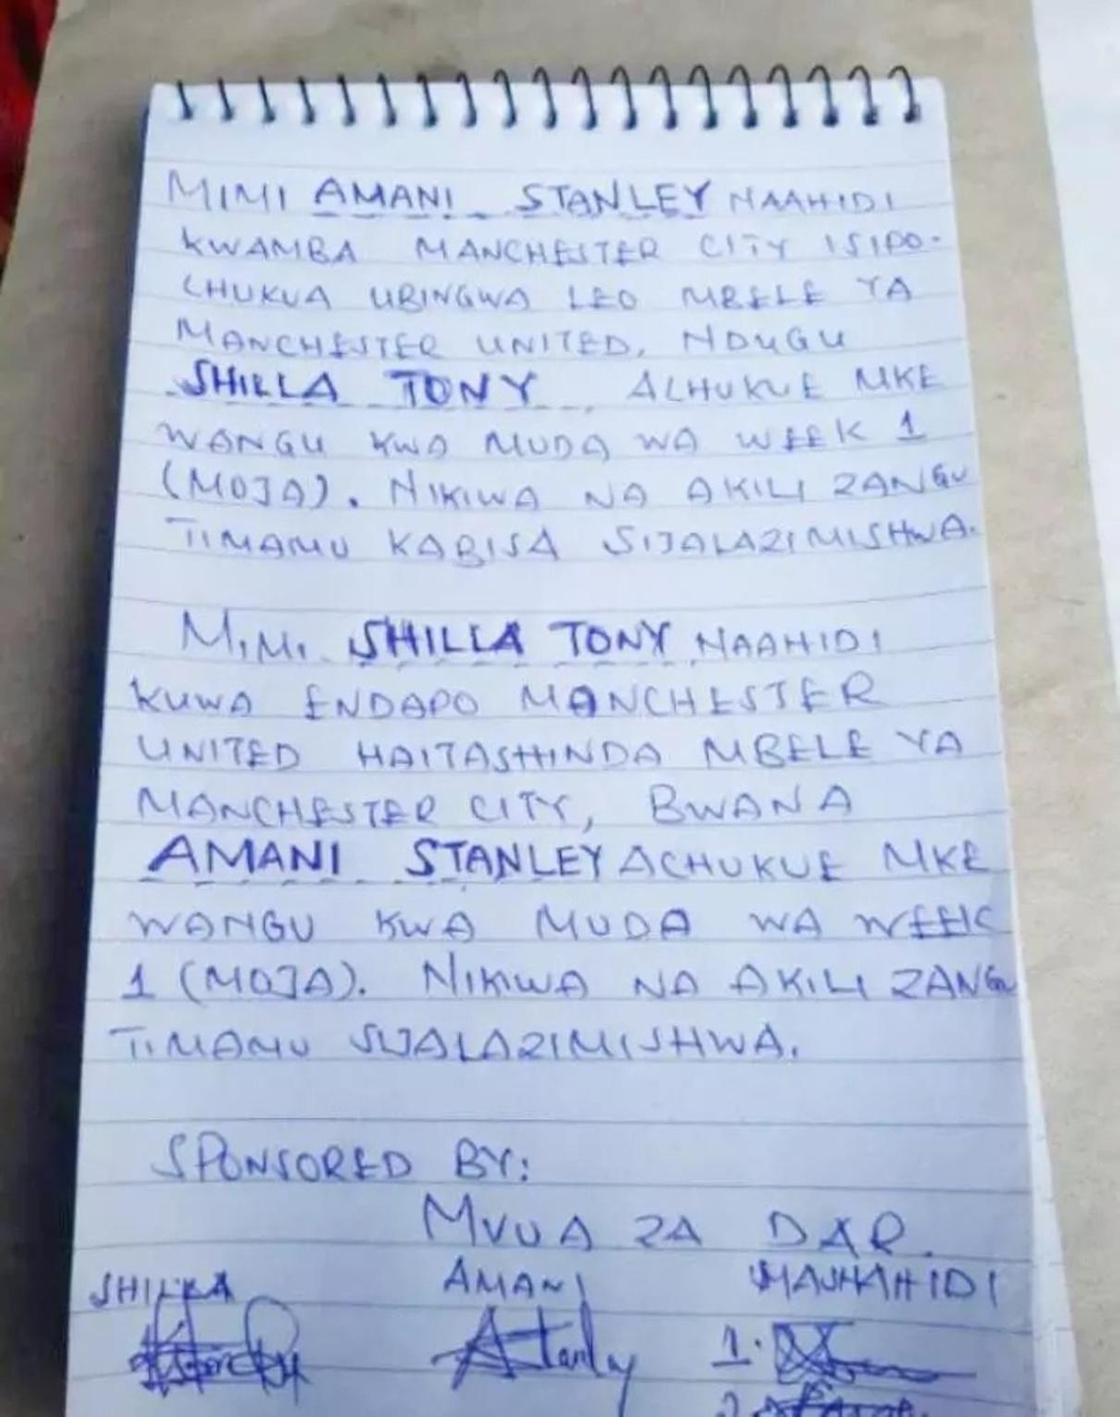 MIMI AMANI STANLEY NAAHIDI
KWAMBA MANCHESTER CITY ISIPO-
CHUKUA UBINGWA LEO MBELE YA
MANCHESTER UNITED, NDUGU
SHILLA TONY ACHUKUE MKE
WANGU KWA MUDA WA WEEK 1
(MOJA). NIKIWA NA AKILI ZANGU
TIMAMU KABISA SIJALAZIMISHWA.
MIMI SHILLA TONY NAAHIDI
KUWA ENDAPO MANCHESTER
UNITED HAITASHINDA MBELE YA
MANCHESTER CITY, BWANA
AMANI STANLEY ACHUKUE MKE
WANGU KWA MUDA WA WEEK
1 (MOJA). NIKIWA NA AKILI ZANGU
TIMAMU SIJALAZIMISHWA.
SPONSORED BY:
MVUA ZA DAR.
SHILLA AMANI MASHAHIDI
AStanley 1.
2